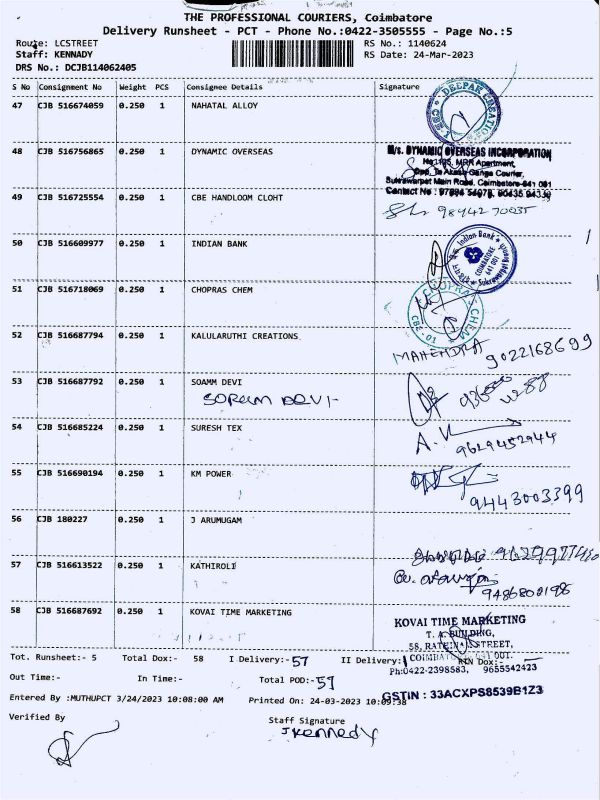 THE PROFESSIONAL COURIERS, Coimbatore
Delivery Runsheet - PCT - Phone No.:0422-3505555 - Page No.:5
Route: LCSTREET RS No.: 1140624
Staff: KENNADY RS Date: 24-Mar-2023
DRS No.: DCJB114062405
S No Consignment No Weight PCS Consignee Details Signature
47 CJB 516674059 0.250 1 NAHATAL ALLOY
DEEPAK CREATIONS
48 CJB 516756865 0.250 1 DYNAMIC OVERSEAS
M/s. DYNAMIC OVERSEAS INCORPORATION
MRN Apartment,
Opp. Ganga Courier,
Sukrawarpet Main Road, Coimbatore-641 001
Contact No :
49 CJB 516725554 0.250 1 CBE HANDLOOM CLOHT
98942 70035
50 CJB 516609977 0.250 1 INDIAN BANK
Indian Bank
COIMBATORE
641 001
51 CJB 516718069 0.250 1 CHOPRAS CHEM
CHOPRAS CHEM
CBE-01
52 CJB 516687794 0.250 1 KALULARUTHI CREATIONS
MAHENDRA 9022168699
53 CJB 516687792 0.250 1 SOAMM DEVI
DEVI-
54 CJB 516685224 0.250 1 SURESH TEX
9629452944
55 CJB 516690194 0.250 1 KM POWER
9443003399
56 CJB 180227 0.250 1 J ARUMUGAM
57 CJB 516613522 0.250 1 KATHIROLI
9486800198
58 CJB 516687692 0.250 1 KOVAI TIME MARKETING
KOVAI TIME MARKETING
T. A. BUILDING,
58, STREET,
Tot. Runsheet:- 5 Total Dox:- 58 I Delivery:- 57 II Delivery: RTN Dox:-
Ph:0422-2398583, 9655542423
Out Time:- In Time:- Total POD:- 57
GSTIN : 33ACXPS8539B1Z3
Entered By :MUTHUPCT 3/24/2023 10:08:00 AM Printed On: 24-03-2023 10:09:38
Verified By Staff Signature
J Kennedy